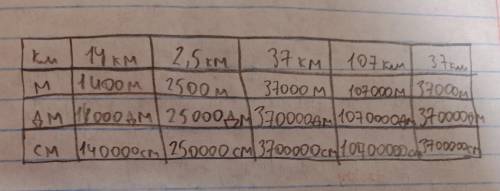 км 14 км 2,5 км 37 км 107 км 37 км
м 1400м 2500м 37000м 107000м 37000м
дм 14000дм 25000дм 370000дм 1070000дм 370000дм
см 140000см 250000см 3700000см 10700000см 3700000см